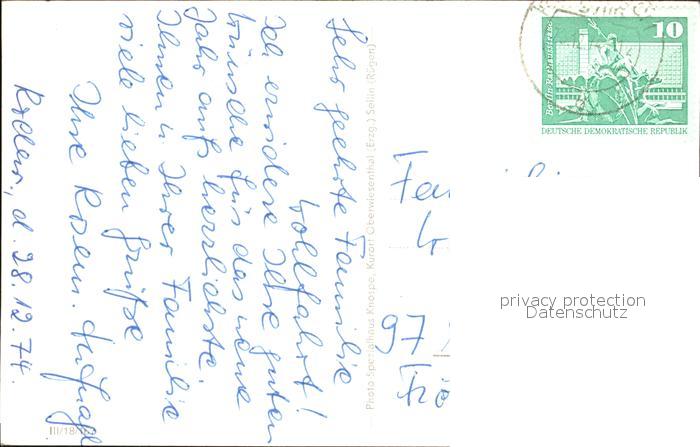 Sehr geehrte Familie
Wohlfahrt!
Ich erwidere Ihre guten
Wünsche für das neue
Jahr aufs herzlichste
Ihnen u. Ihrer Familie
viele lieben Grüße
Ihre Rosem.
d. 28.12.74.
Photo Spezialhaus Knospe, Kurort Oberwiesenthal (Erzg.) Sellin (Rügen)
III/18/
Fam
W
97
10
Berlin-Rathausstraße
DEUTSCHE DEMOKRATISCHE REPUBLIK
privacy protection
Datenschutz